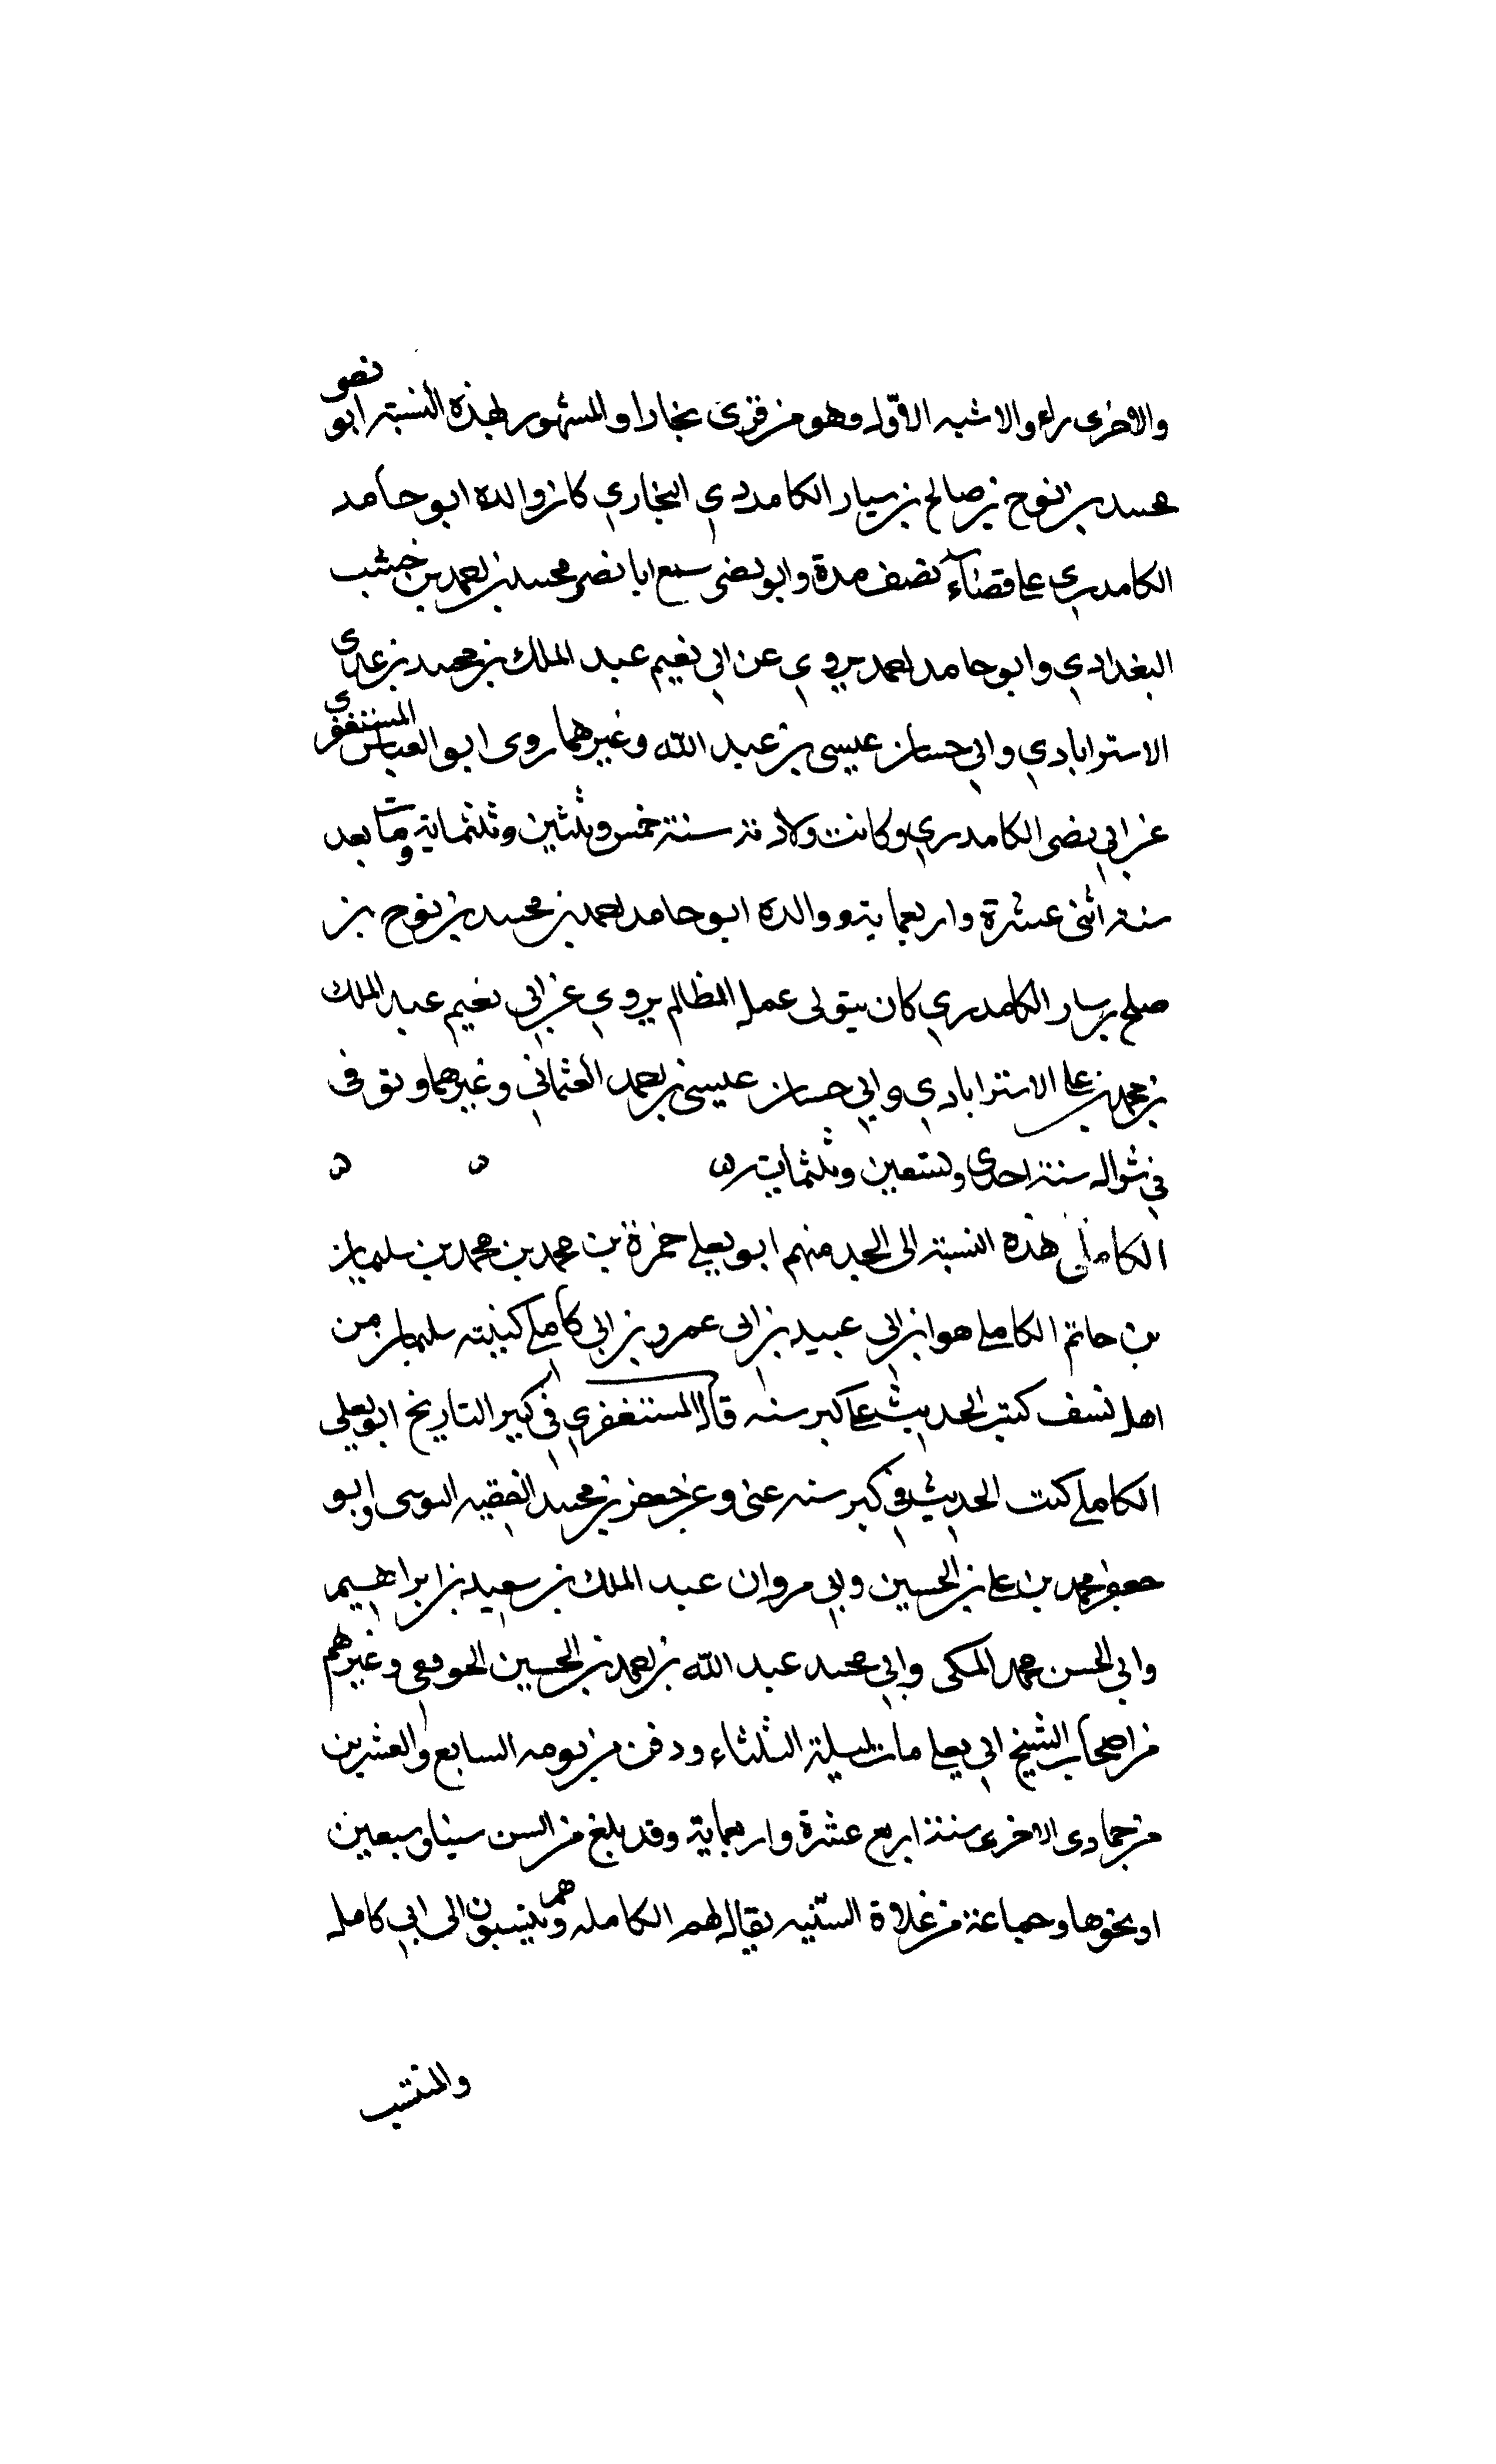 والاخرى راء والاشبه الاول وهو من قرى بخارا والمشهور بهذه النسبة ابو نصر
محمد بن نوح بن صالح بن سيار الكامددي البخاري كان والده ابو حامد
الكامدري على قضاء نصف مدة وابو نصر سمع ابا نصر محمد بن احمد بن خنب
البغدادي وابو حامد احمد يروي عن ابي نعيم عبد الملك بن محمد بن عدي
الاسترابادي وابي حسان عيسى بن عبد الله وغيرهما روى ابو العباس المستغفري
عن ابي نصر الكامدري وكانت ولادته سنة خمس وثلثين وثلثماية ومات بعد
سنة اثنى عشرة واربعماية ووالده ابو حامد احمد بن محمد بن نوح بن
صلح بن سيار الكامدري كان يتولى عمل المظالم يروي عن ابي نعيم عبد الملك
بن محمد بن على الاسترابادي وابي حسان عيسى بن احمد العثماني وغيرهما وتوفى
في شوال سنة احدى وتسعين وثلثماية
الكاملي هذه النسبة الى الجد منهم ابو يعلي حمزة بن محمد بن محمد بن سليمان
بن حاتم الكاملي هو ابن ابي عبيد بن ابى عمرو بن ابي كامل كنيته سليمان من
اهل نسف كتب الحديث على كبر سنه قال المستغفري في كبير التاريخ ابو يعلي
الكاملي كتب الحديث في كبر سنه عنى وعن جعفر بن محمد الفقيه وابو
جعفر محمد بن على بن الحسين وابي مروان عبد الملك بن سعيد بن ابراهيم
وابي الحسن محمد المكى وابي محمد عبد الله بن احمد بن الحسين وغيرهم
من اصحاب الشيخ ابي يعلى مات ليلة الثلثاء ودفن من يومه السابع والعشرين
من جمادى الاخرى سنة اربع عشرة واربعماية وقد بلغ من السن ستا وسبعين
او نحوها وجماعة من غلاة السنيه يقال لهم الكامله وهم ينتسبون الى ابي كامل
والمنتسب